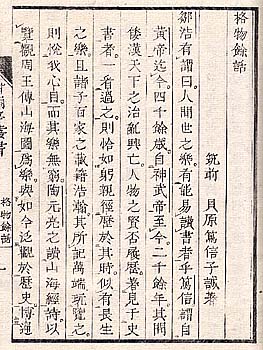 格物餘話
筑前　貝原篤信子誠著
鄒浩有謂曰人間世之樂有能易讀書者乎篤信謂自
黃帝迄今四千餘歲自神武帝至今二千餘年其間
倭漢天下之治亂興亡人物之賢否履歷著見于史
書者一看過之則恰如躬親歷於其時似有長生
之樂且諸子百家之載籍浩瀚其所記萬端玩覽之
則悅我心目而其樂無窮陶元亮之讀山海經詩以
覽觀周王傳山海圖爲樂與如今泛觀於歷史博運
格物餘話
一